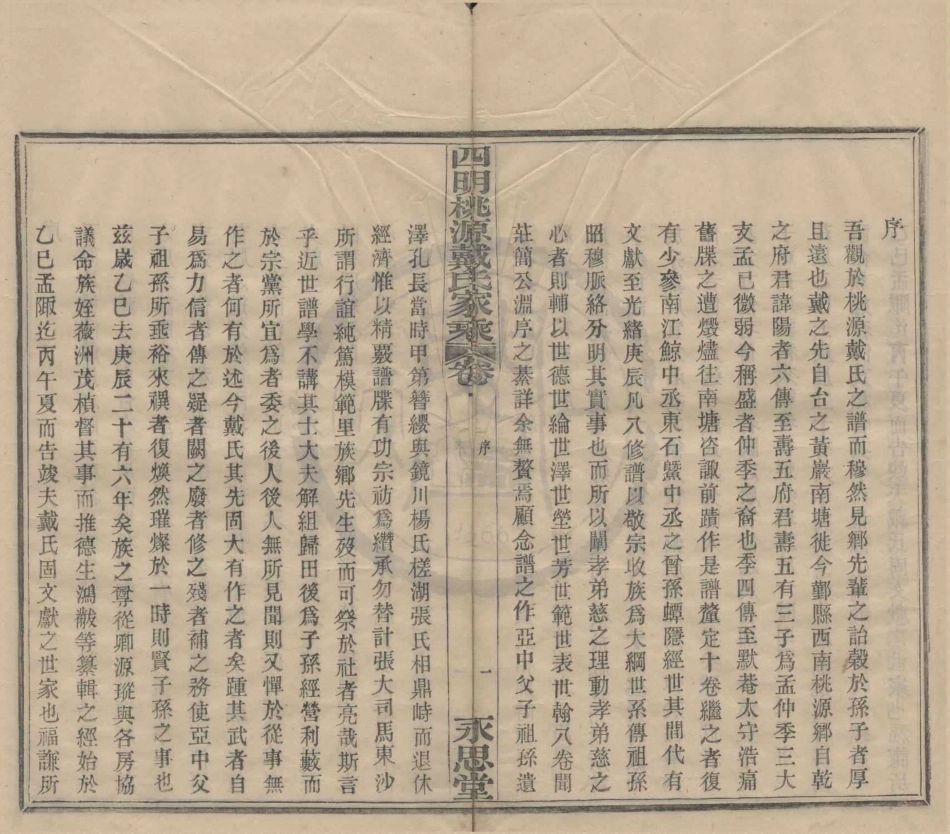 序
吾觀於桃源戴氏之譜而穆然見鄉先輩之詒穀於孫子者厚
且遠也戴之先自台之黃巖南塘徙今鄞縣西南桃源鄉自乾
之府君諱陽者六傳至壽五府君壽五有三子爲孟仲季三大
支孟已微弱今稱盛者仲季之裔也季四傳至默菴太守浩痛
舊牒之遭燬燼往南塘咨諏前蹟作是譜釐定十卷繼之者復
有少參南江鯨中丞東石鱀中丞之曾孫蟫隱經世其間代有
文獻至光緒庚辰凡八修譜以敬宗收族爲大綱世系傳祖孫
昭穆脈絡分明其實事也而所以闡孝弟慈之理動孝弟慈之
心者則輔以世德世綸世澤世塋世芳世範世表世翰八卷聞
莊簡公淵序之綦詳余無贅焉顧念譜之作亞中父子祖孫遺
四明桃源戴氏家乘 卷 序 一 永思堂
澤孔長當時甲第簪纓與鏡川楊氏槎湖張氏相鼎峙而退休
經濟惟以精覈譜牒有功宗祊爲纘承勿替計張大司馬東沙
所謂行誼純篤模範里族鄉先生歿而可祭於社者亮哉斯言
乎近世譜學不講其士大夫解組歸田後爲子孫經營利藪而
於宗黨所宜爲者委之後人後人無所見聞則又憚於從事無
作之者何有於述今戴氏其先固大有作之者矣踵其武者自
易爲力信者傳之疑者闕之廢者修之殘者補之務使亞中父
子祖孫所垂裕來禩者復煥然璀燦於一時則賢子孫之事也
茲歲乙巳去庚辰二十有六年矣族之尊從卿源瑽與各房協
議命族姪薇洲茂楨督其事而推德生鴻黻等纂輯之經始於
乙巳孟陬迄丙午夏而告竣夫戴氏固文獻之世家也福謙所